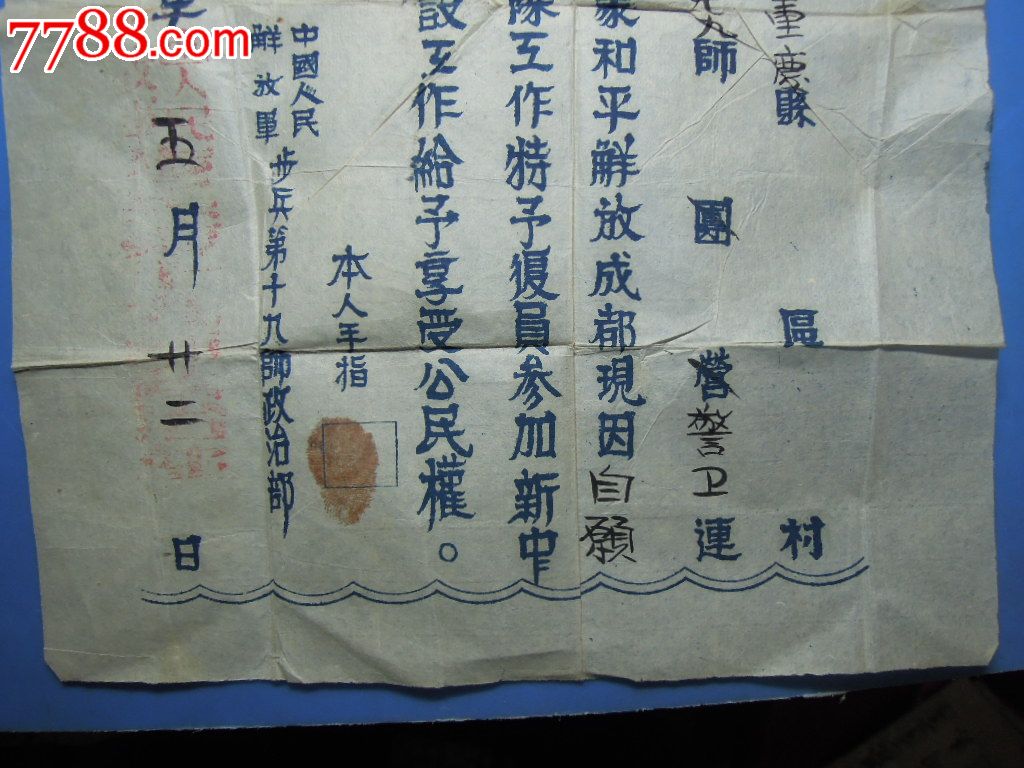 7788.com
重慶縣 區 村
九師 團 營警卫連
家和平解放成都現因自願
隊工作特予復員参加新中
設工作給予享受公民權。
本人手指
中國人民
解放軍
步兵第十九師政治部
年五月廿二日